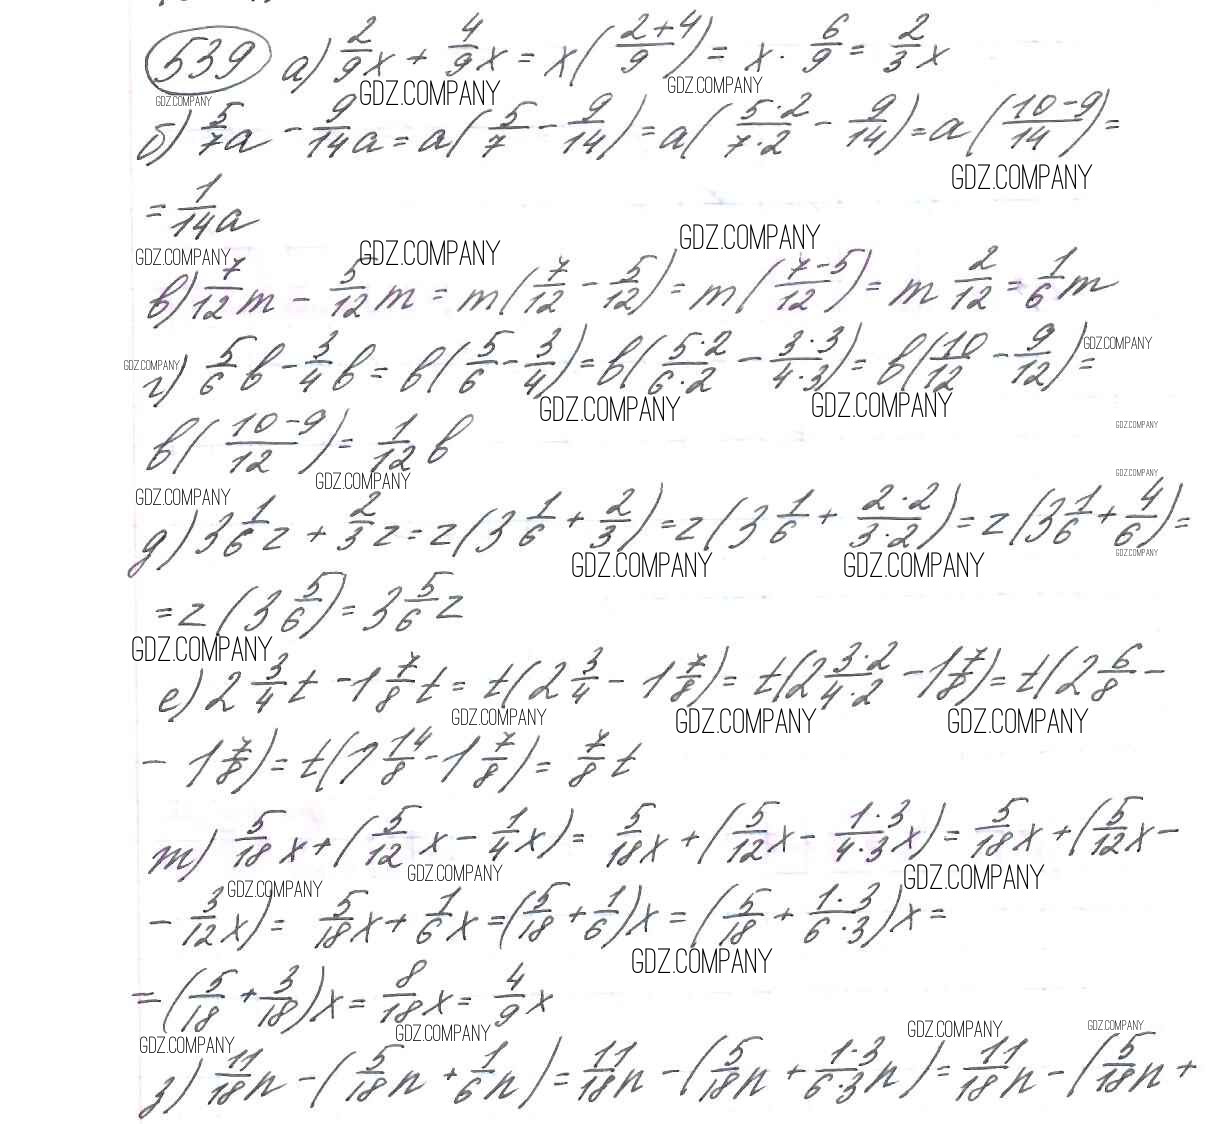 539 а) 2/9 x + 4/9 x = x ( (2+4)/9 ) = x · 6/9 = 2/3 x
GDZ.COMPANY GDZ.COMPANY GDZ.COMPANY
б) 5/7 a - 9/14 a = a ( 5/7 - 9/14 ) = a ( (5·2)/(7·2) - 9/14 ) = a ( (10-9)/14 ) =
GDZ.COMPANY
= 1/14 a
GDZ.COMPANY GDZ.COMPANY GDZ.COMPANY
в) 7/12 m - 5/12 m = m ( 7/12 - 5/12 ) = m ( (7-5)/12 ) = m 2/12 = 1/6 m
GDZ.COMPANY GDZ.COMPANY
г) 5/6 b - 3/4 b = b ( 5/6 - 3/4 ) = b ( (5·2)/(6·2) - (3·3)/(4·3) ) = b ( 10/12 - 9/12 ) =
GDZ.COMPANY GDZ.COMPANY GDZ.COMPANY
b ( (10-9)/12 ) = 1/12 b
GDZ.COMPANY GDZ.COMPANY GDZ.COMPANY
д) 3 1/6 z + 2/3 z = z ( 3 1/6 + 2/3 ) = z ( 3 1/6 + (2·2)/(3·2) ) = z ( 3 1/6 + 4/6 ) =
GDZ.COMPANY GDZ.COMPANY GDZ.COMPANY
= z ( 3 5/6 ) = 3 5/6 z
GDZ.COMPANY
е) 2 3/4 t - 1 7/8 t = t ( 2 3/4 - 1 7/8 ) = t ( 2 (3·2)/(4·2) - 1 7/8 ) = t ( 2 6/8 -
GDZ.COMPANY GDZ.COMPANY GDZ.COMPANY
- 1 7/8 ) = t ( 1 14/8 - 1 7/8 ) = 7/8 t
ж) 5/18 x + ( 5/12 x - 1/4 x ) = 5/18 x + ( 5/12 x - (1·3)/(4·3) x ) = 5/18 x + ( 5/12 x -
GDZ.COMPANY GDZ.COMPANY GDZ.COMPANY
- 3/12 x ) = 5/18 x + 1/6 x = ( 5/18 + 1/6 ) x = ( 5/18 + (1·3)/(6·3) ) x =
GDZ.COMPANY
= ( 5/18 + 3/18 ) x = 8/18 x = 4/9 x
GDZ.COMPANY GDZ.COMPANY GDZ.COMPANY GDZ.COMPANY
з) 11/18 n - ( 5/18 n + 1/6 n ) = 11/18 n - ( 5/18 n + (1·3)/(6·3) n ) = 11/18 n - ( 5/18 n +